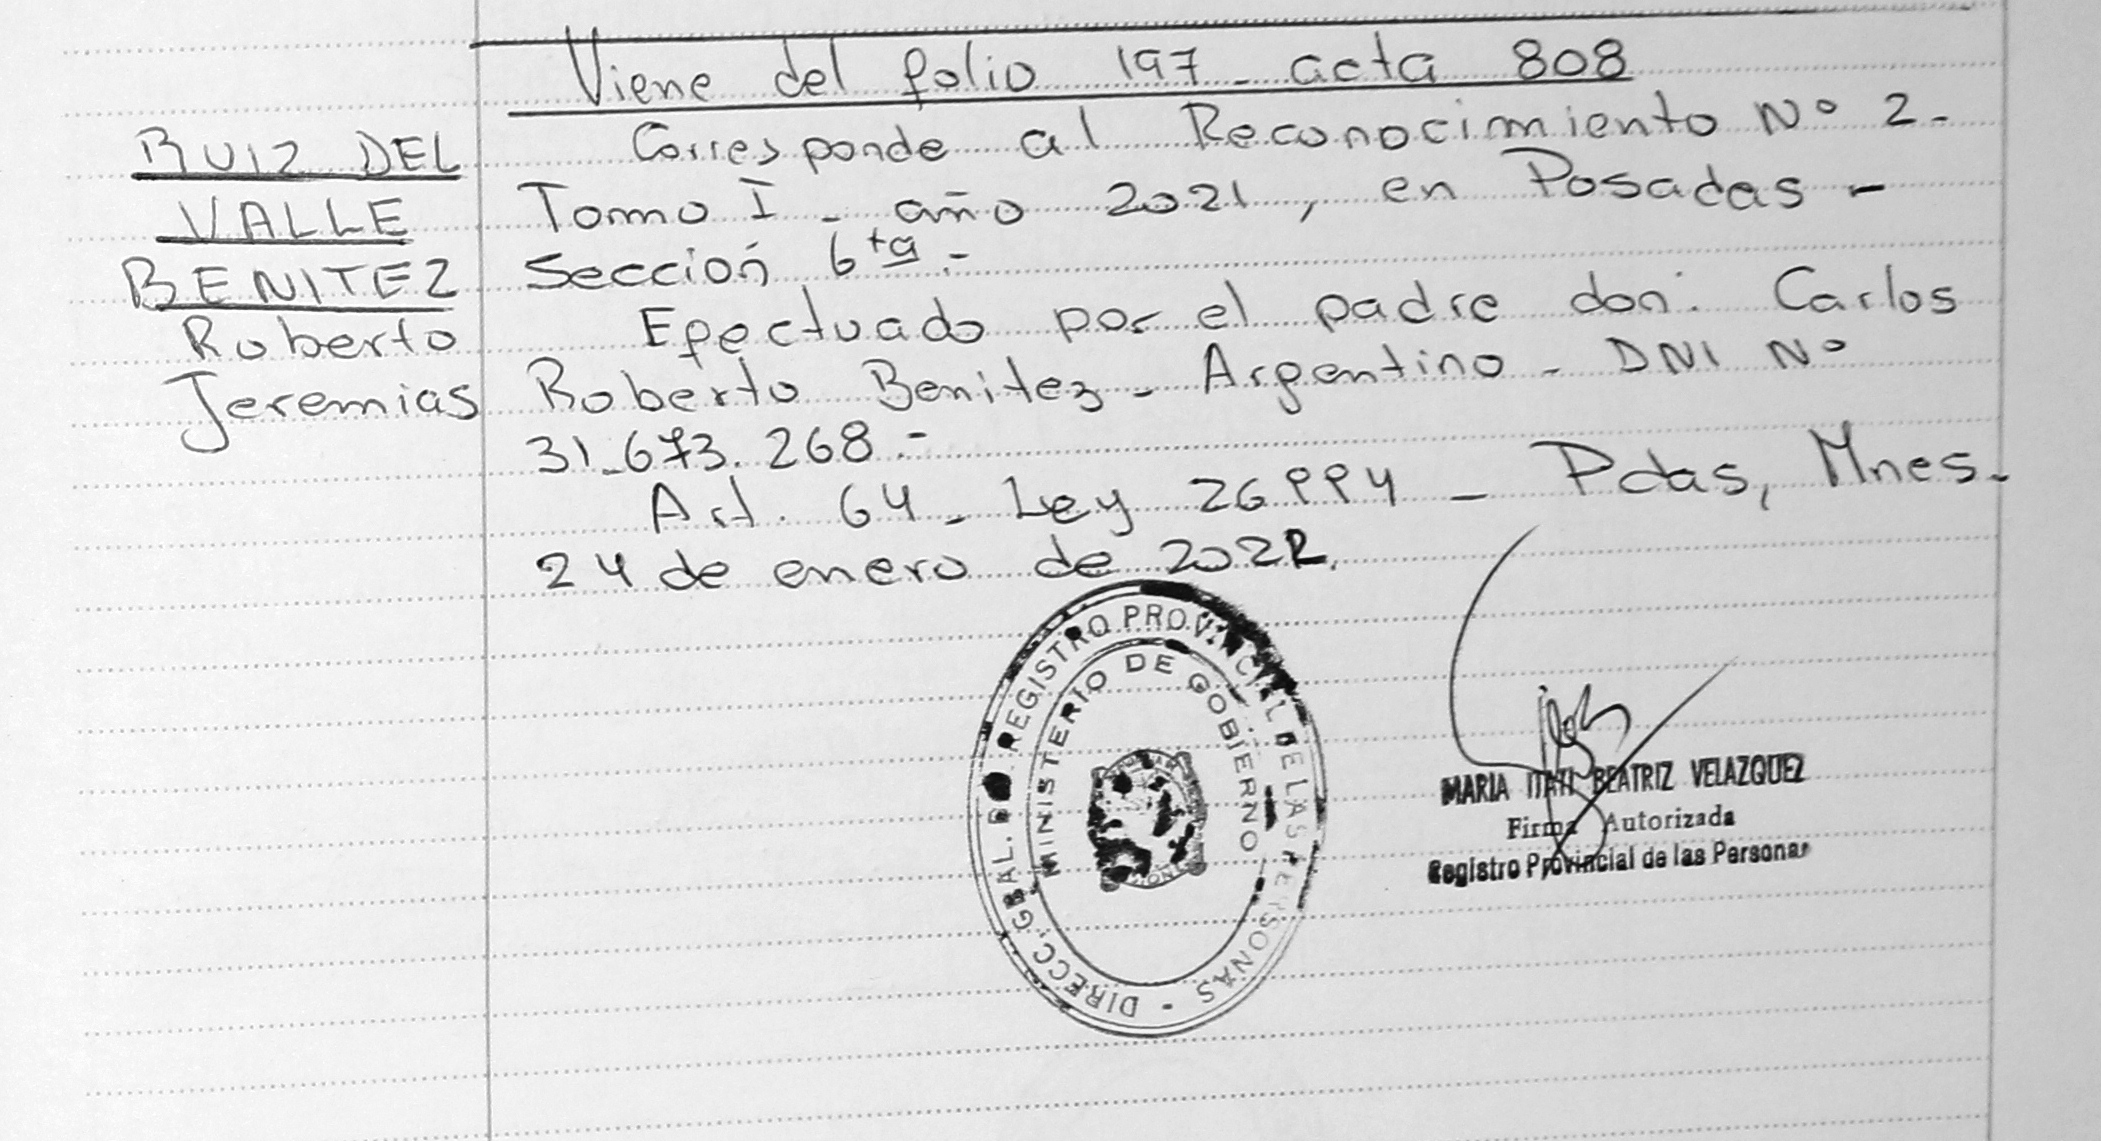 Viene del folio 197 - acta 808
RUIZ DEL
VALLE
BENITEZ
Roberto
Jeremias
Corresponde al Reconocimiento Nº 2.-
Tomo I - año 2021, en Posadas -
Sección 6ta.-
Efectuado por el padre don: Carlos
Roberto Benitez - Argentino - DNI Nº
31.673.268.-
Art. 64 - Ley 26994 - Pdas, Mnes.
24 de enero de 2022.
DIRECC. GRAL. DEL REGISTRO PROVINCIAL DE LAS PERSONAS -
MINISTERIO DE GOBIERNO
MARIA ITATI BEATRIZ VELAZQUEZ
Firma Autorizada
Registro Provincial de las Personas